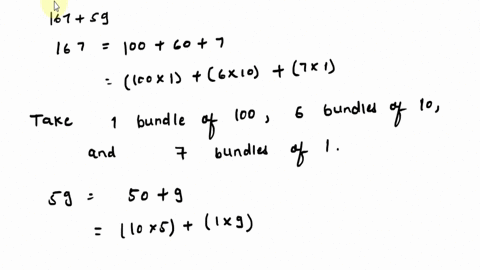 167 + 59
167 = 100 + 60 + 7
= (100 x 1) + (6 x 10) + (7 x 1)
Take 1 bundle of 100, 6 bundles of 10,
and 7 bundles of 1.
59 = 50 + 9
= (10 x 5) + (1 x 9)